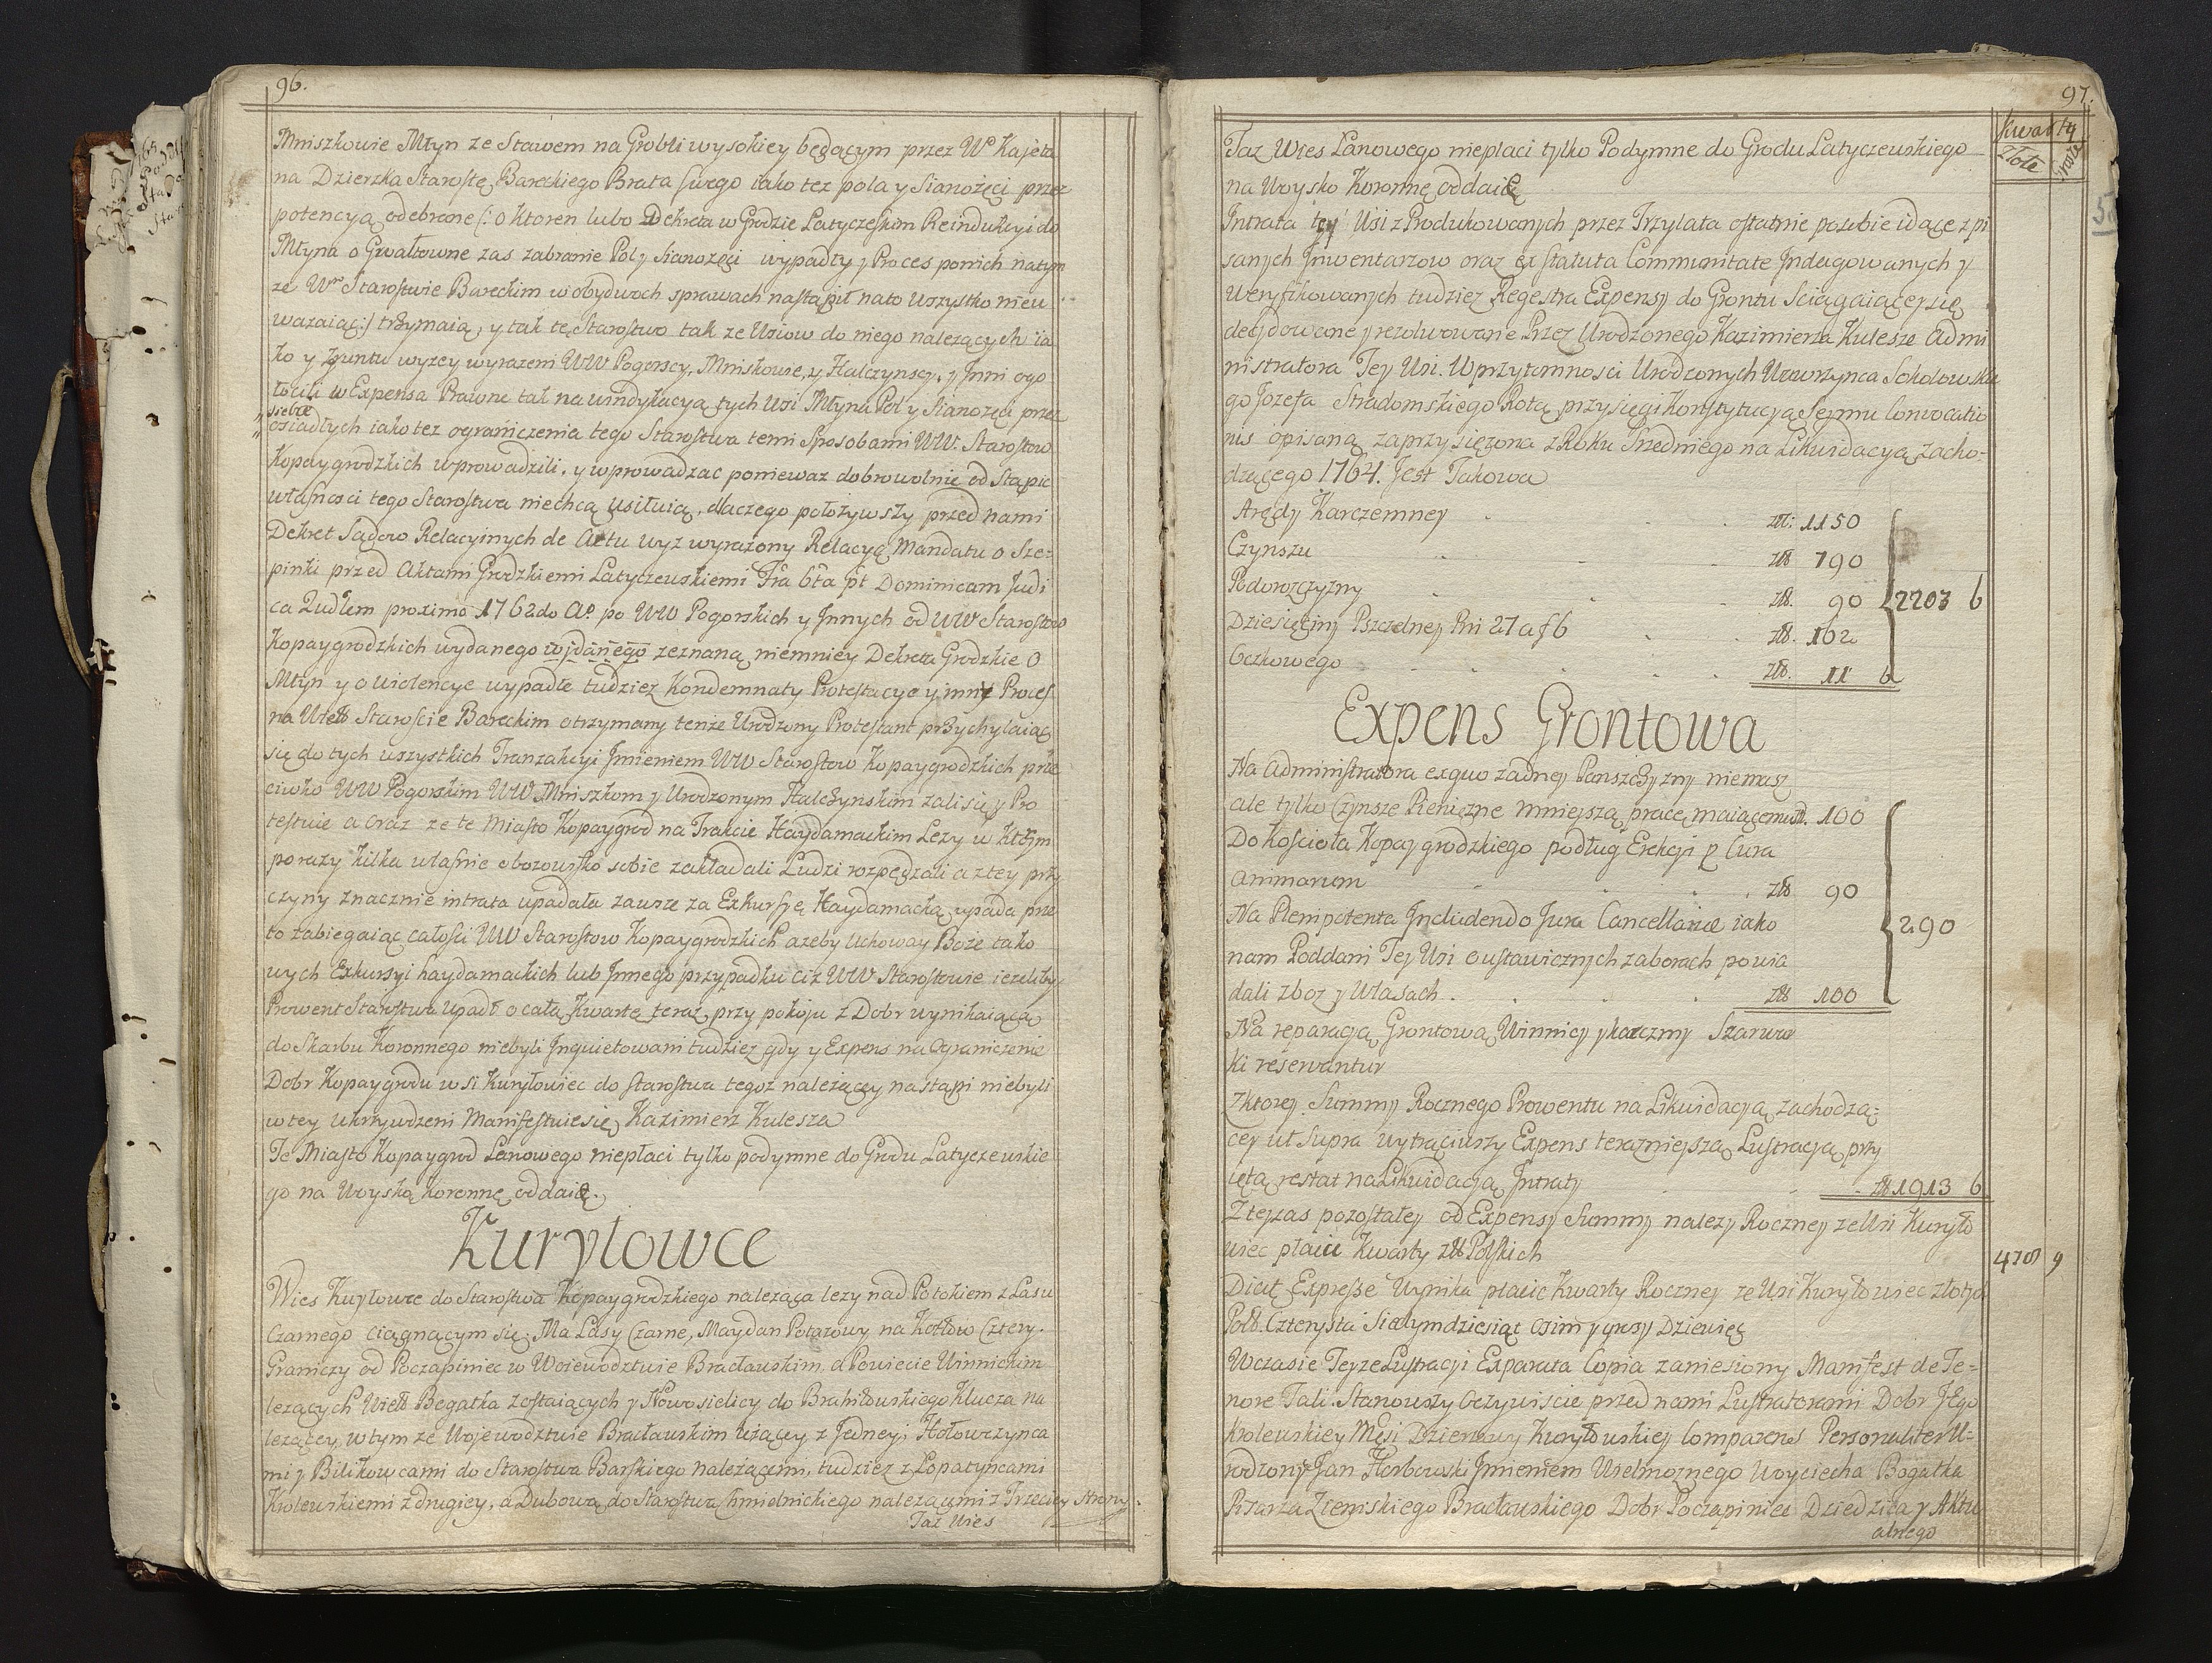 96.
Mniszkowie Młyn ze Stawem na Grobli wysokiey będącym przez Wo Kajeta
na Dzierzka Starostę Bareckiego Brata swego iako tez pola y Sianozęci przez
potencyą odebrane (: o ktoren lubo Dekreta w Grodzie Latyczeskim Reindukcyi do
Młyna o Gwałtowne zas zabranie Pol y Sianozęci wypadły y Proces ponich natym
ze Wm Starostwie Bareckim w obydwoch sprawach nastąpił nato wszystko nieu
wazaiąc :) trzymaią, y tak tę Starostwo tak ze Wsiow do niego nalezących ia
ko y gruntu wyzey wyrazeni WW Pogorscy, Mniskowie, y Halczynscy, y Inni ogo
łocili w Expensa Prawne tak na windykacyą tych Wsi Młyna Pol y Sianozęci przez
siebie
osiadłych iako tez ograniczenia tego Starostwa temi Sposobami WW. Starostow
Kopaygrodzkich wprowadzili, y wprowadzac poniewaz dobrowolnie od Stąpic
własnosci tego Starostwa niechcą usiłuią, dlaczego położywszy przed nami
Dekret Sądow Relacyinych de Actu wyz wyrazony Relacyą Mandatu o Sze-
pinki przed Aktami Grodzkiemi Latyczewskiemi Fra 6ta pt Dominicam Judi
ca Qudlem proximo 1762do Ao. po WW Pogorskich y Innych od WW Starostow
Kopaygrodzkich wydanego wydanego zeznaną niemniey Dekreta Grodzkie O
Młyn y o wiolencye wypadłe tudziez Kondemnaty Protestacye y inny Proces
na Wielb Staroscie Bareckim otrzymany tenże Urodzony Protestant przychylaiąc
się do tych wszystkich Tranzakcyi Imieniem WW Starostow Kopaygrodzkich prze
ciwko WW Pogorskim WW Mniszkom y Urodzonym Halczynskim zali się y Pro
testuie a oraz ze te Miasto Kopaygrod na Trakcie Haydamackim Lezy w ktorym
porazy kilka własnie obozowisko sobie zakładali Ludzi rozpędzali a ztey przy
czyny znacznie intrata upadała zawsze za Exkursyę Haydamacką upada prze
to zabiegaiąc całosci WW Starostow Kopaygrodzkich azeby Uchoway Boże tako
wych Exkursyi haydamackich lub Innego przypadku ciz WW Starostowie iezeliby
Prowent Starostwa upadł o całą Kwartę teraz przy pokoju z Dobr wynikaiącą
do Skarbu Koronnego niebyli Inquietowani tudziez gdy y Expens na Ograniczenie
Dobr Kopaygrodu w si Kuryłowiec do starostwa tegoz należącey nastąpi niebyli
w tey ukrzywdzeni Manifestuie się Kazimierz Kulesza
Te Miasto Kopaygrod Lanowego niepłaci tylko podymne do Grodu Latyczewskie
go na Woyską koronnę oddaię.
Kuryłowce
Wies Kuyłowce do Starostwa Kopaygrodzkiego należąca lezy nad Potokiem z Lasu
Czarnego ciągnącym się. Ma Lasy Czarne, Maydan Potazowy na Kotłow Cztery.
Graniczy od Poczapiniec w Woiewodztwie Bracławskim, a Powiecie Winnickim
lezących Wielb Bogatka zostaiących y Nowosielicy do Brahiłowskiego Klucza na
lezącey w tym ze Wojewodztwie Bracławskim lizącey z Jedney, Hołowczynca
mi y Bilikowcami do Starostwa Barskiego należącemi, tudziez z Lopatyncami
Krolewskiemi z drugiey, a Dubową do Starostwa Chmielnickiego nalezącemi z Trzeciey strony:
Taz Wies
97.
Kwarty
Złote grosze
Taz Wies Lanowego niepłaci tylko Podymne do Grodu Latyczewskiego
na Woysko Koronnę oddaię
Intrata tey Wsi z Produkowanych przez Trzylata ostatnie posobie idące z pi
sanych Inwentarzow oraz ex statuta Communitate Indagowanych y
weryfikowanych tudziez Regestra Expensy do Grontu sciągaiącey się
decydowane y rezolwowane Przez Urodzonego Kazimierza Kulesze Admi
nistratora Tey Wsi. W przytomnosci Urodzonych Wawrzynca Sokołowskie
go Jozefa Stradomskiego Rotą przysięgi Konstytucyą Seymu Convocatio
nis opisaną zaprzysięzona z Roku Srzedniego na Likwidacyą zacho-
dzącego 1764. Jest Takowa
Arędy Karczemney zł: 1150
Czynszu złł 790
Podorozczyzny złł. 90 2203 6
Dziesięciny Pszczelney Pni 27 a f 6 złł. 162
Oczkowego złł. 11 6
Expens Grontowa
Na Administratora exquo zadney Panszczyzny niemasz
ale tylko Czynsze Pieniczne mnieyszą pracę maiącemu zł. 100
Do Koscioła Kopaygrodzkiego podług Erekcyi p Cura
animarum złł 90
Na Plenipotenta Includendo Jura Cancellariæ iako 290
nam Poddani Tey Wsi o ustawicznych zaborach powia
dali zboz y Wlasach złł 100
Na reparacyą Grontową Winnicy y karczmy Szarwar
ki reservantur
Zktorey Summy Rocznego Prowentu na Likwidacyą zachodzą-
cey ut supra wytrąciwszy Expens terazniejszą Lustracyą przy
iętą restat na Likwidacyą Intraty złł 1913 6
Z teyzas pozostałey od Expensy Summy nalezy Roczney ze Wsi Kuryło
wiec płacic Kwarty złł Polskich 478 9
Dicit Expresse Wynika płacic Kwarty Roczney ze Wsi Kuryłowiec złotych
Pols. Czterysta Siedymdziesiąt osim y groszy Dziewięć
Wczasie Teyze Lustracyi Exparata Copia zaniesiony Manifest de Te-
nore Tali. Stanowszy Oczywiscie przed nami Lustratorami Dobr JEgo
Krolewskiey Msci Dzierzawy Kuryłowskiey Comparens Personaliter U-
rodzony Jan Horbowski Imieniem Wielmoznego Woyciecha Bogatka
Pisarza Ziemskiego Bracławskiego Dobr Poczapiniec Dziedzica y Aktu
alnego